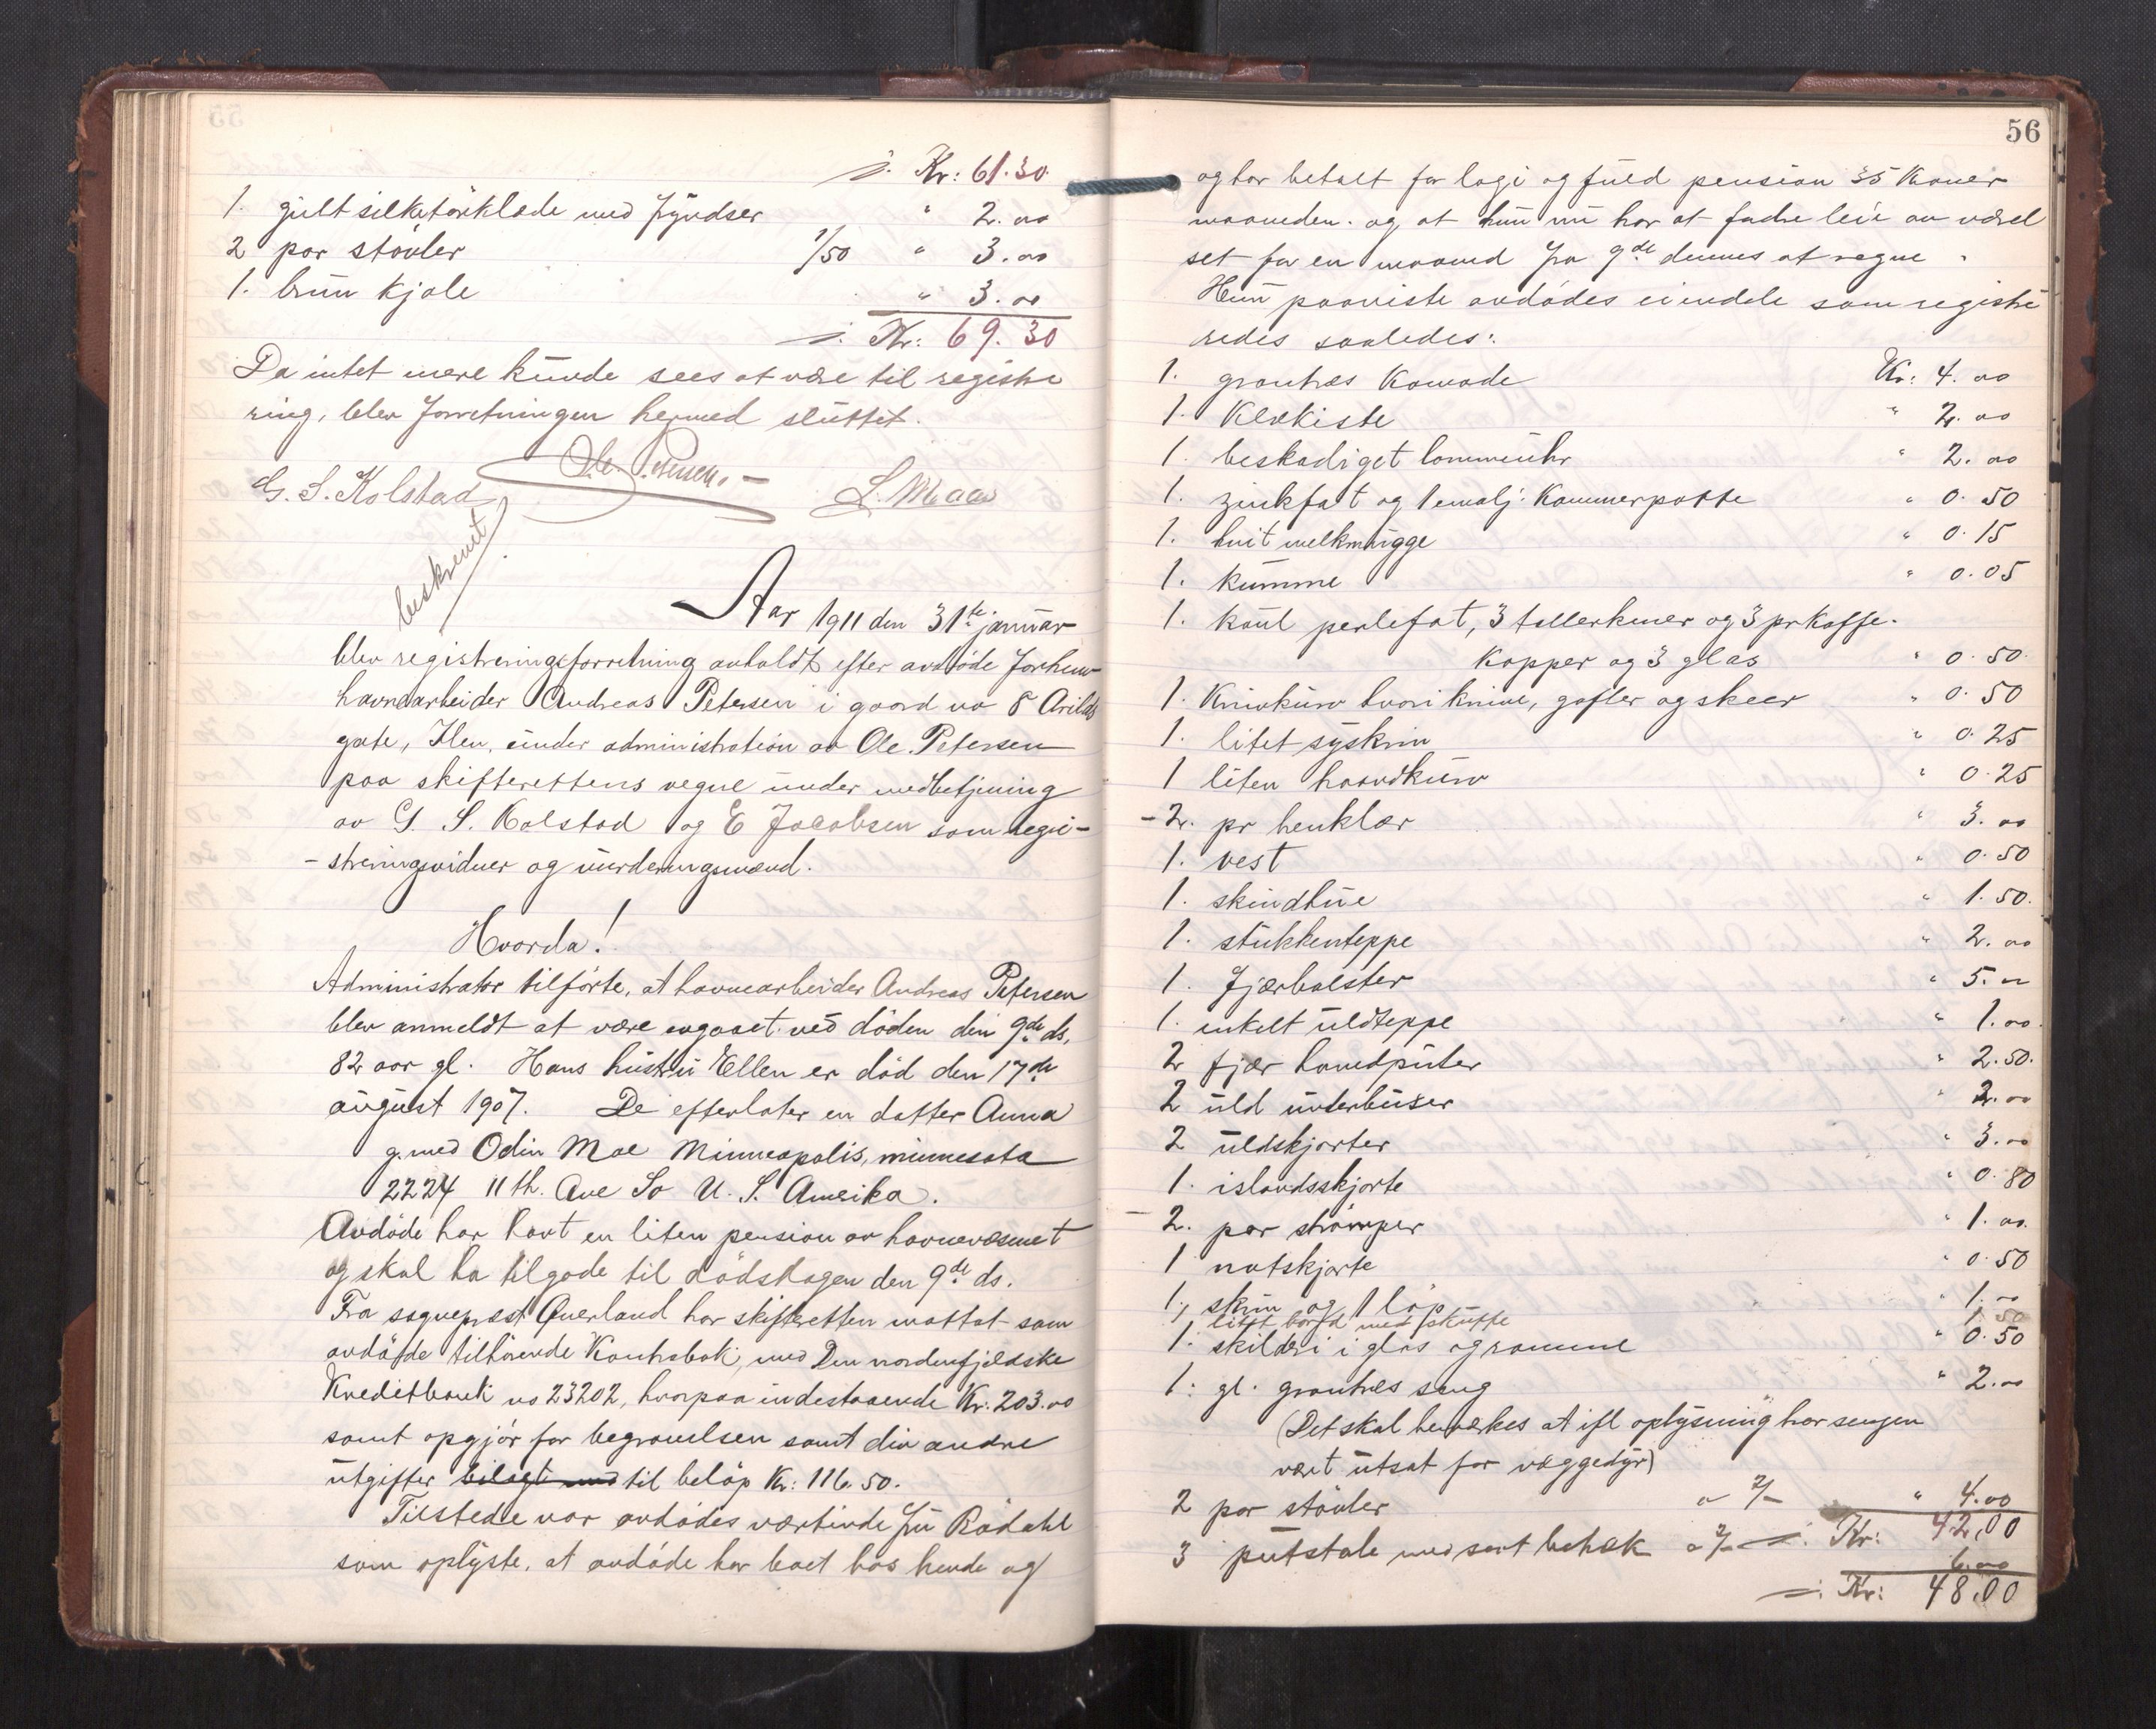 /. Kr: 61.30
1. gult silketörklæde med fryndser " 2.oo
2 par stövler 1/50 " 3.oo
1. brun kjole " 3.oo
/. Kr: 69.30
Da intet mere kunde sees at være til registre
ring, blev forretningen hermed sluttet.
Ole Petersen.
G. S. Kolstad L. Moe
beskrevet
Aar 1911 den 31te januar
blev registreringsforretning avholdt efter avdöde forhenv
havnearbeider Andreas Petersen i gaard no 8 Arilds
gate, Ilen, under administration av Ole Petersen
paa skifterettens vegne under medbetjening
av G. S. Kolstad og E Jacobsen som regi-
-streringsvidner og vurderingsmænd.
Hvorda!
Administrator tilförte, at havnearbeider Andreas Petersen
blev anmeldt at være avgaaet ved döden den 9de ds,
82 aar gl. Hans hustru Ellen er död den 17de
august 1907. De efterlater en datter Anna
g. med Odin Moe Minneapolis, minnesota
2224 11th. Ave So U. S. Amerika.
Avdöde har havt en liten pension av havnevæsenet
og skal ha tilgode til dödsdagen den 9de ds.
Fra sogneprest Querland har skifteretten mottat som
avdöde tilhörende Kontrabok, med Den nordenfjeldske
Kreditbank no 23202, hvorpaa indestaaende Kr. 203.oo
samt opgjör for begravelsen samt div andre
utgifter bilagt med til belöp Kr: 116.50.
Tilstede var avdödes værtinde fru Rödahl
som oplyste, at avdöde har boet hos hende og
56
og har betalt for logi og fuld pension 35 Kroner
maaneden. og at hun nu har at fordre leie av værel
set for en maaned fra 9de dennes at regne.
Hun paaviste avdödes eiendele som registre
redes saaledes:
1. grantræs Komode Kr: 4.oo
1. Klækiste " 2.oo
1. beskadiget lommeuhr " 2.oo
1. zinkfat og 1 emalj. Kammerpotte " 0.50
1. hvit melkmugge " 0.15
1. kumme " 0.05
1. hvit perlefat, 3 tallerkener og 3 pr Kaffe-
kopper og 3 glas " 0.50
1. Knivkurv hvori knive, gafler og skeer " 0.50
1. litet syskrin " 0.25
1 liten haandkurv " 0.25
-2. pr benklær " 3.oo
1. vest " 0.50
1. skindhue " 1.50.
1. stukkenteppe " 2.oo
1. fjærbolster " 5.oo
1. enkelt uldteppe " 1.oo.
2 fjær hovedputer " 2.50.
2 uld underbuxer " 2.oo
2 uldskjorter " 3.oo
1. islandsskjorte " 0.80
-2. par strömper " 1.oo.
1 natskjorte " 0.50
1. skrin og 1 löp " 1.oo
1. litet bord med skuffe 1.50
1. skilderi i glas og ramme " 0.50
1. gl. grantræs seng " 2.oo
(Det skal bemerkes at ifl oplysning har sengen
vært utsat for væggedyr)
2 par stövler a 2/- " 4.oo
/. Kr: 42,00
3 putstole med sort betræk a 2/- 6.oo
/. Kr: 48.00